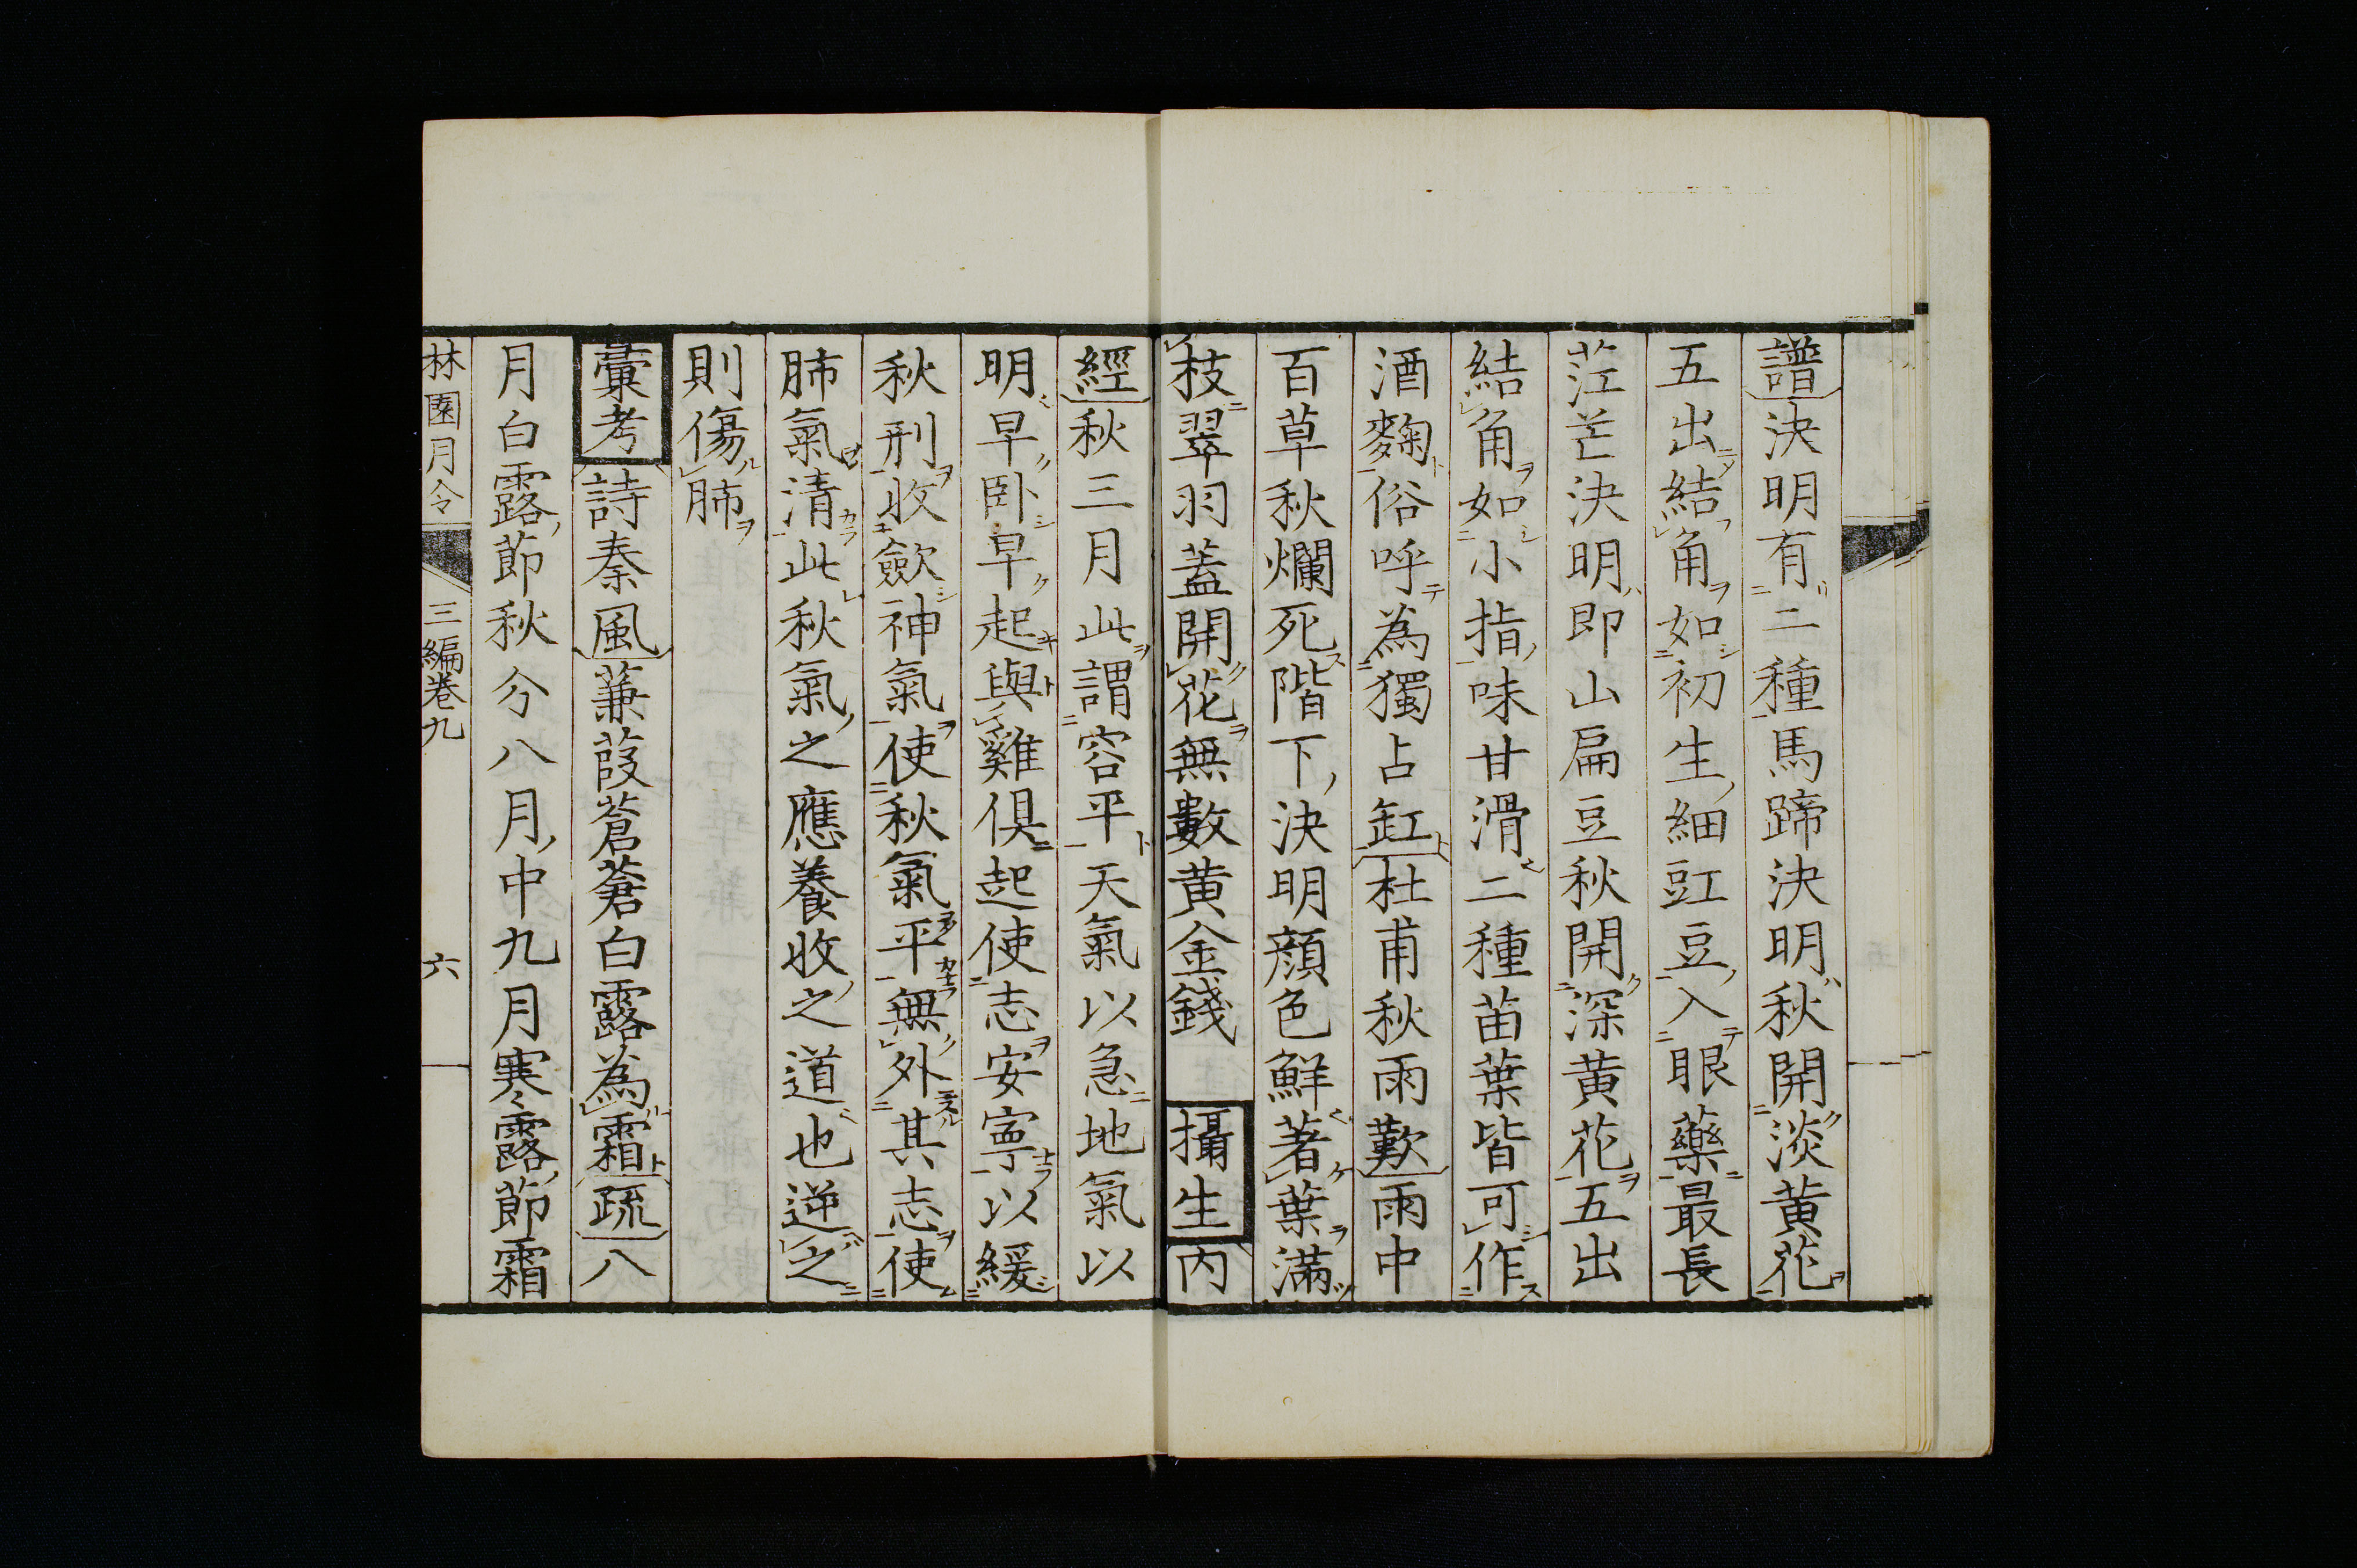 譜決明有二種馬蹄決明秋開淡黄花
五出結角如初生細豇豆入眼藥最長
茳芒決明即山扁豆秋開深黄花五出
結角如小指味甘滑二種苗葉皆可作
酒麴俗呼為獨占缸杜甫秋雨歎雨中
百草秋爛死階下決明顔色鮮著葉滿
枝翠羽蓋開花無數黄金錢 攝生内
經秋三月此謂容平天氣以急地氣以
明早卧早起與雞俱起使志安寧以緩
秋刑收斂神氣使秋氣平無外其志使
肺氣清此秋氣之應養收之道也逆之
則傷肺
彙考詩秦風蒹葭蒼蒼白露為霜疏八
月白露節秋分八月中九月寒露節霜
林園月令 三編卷九 六